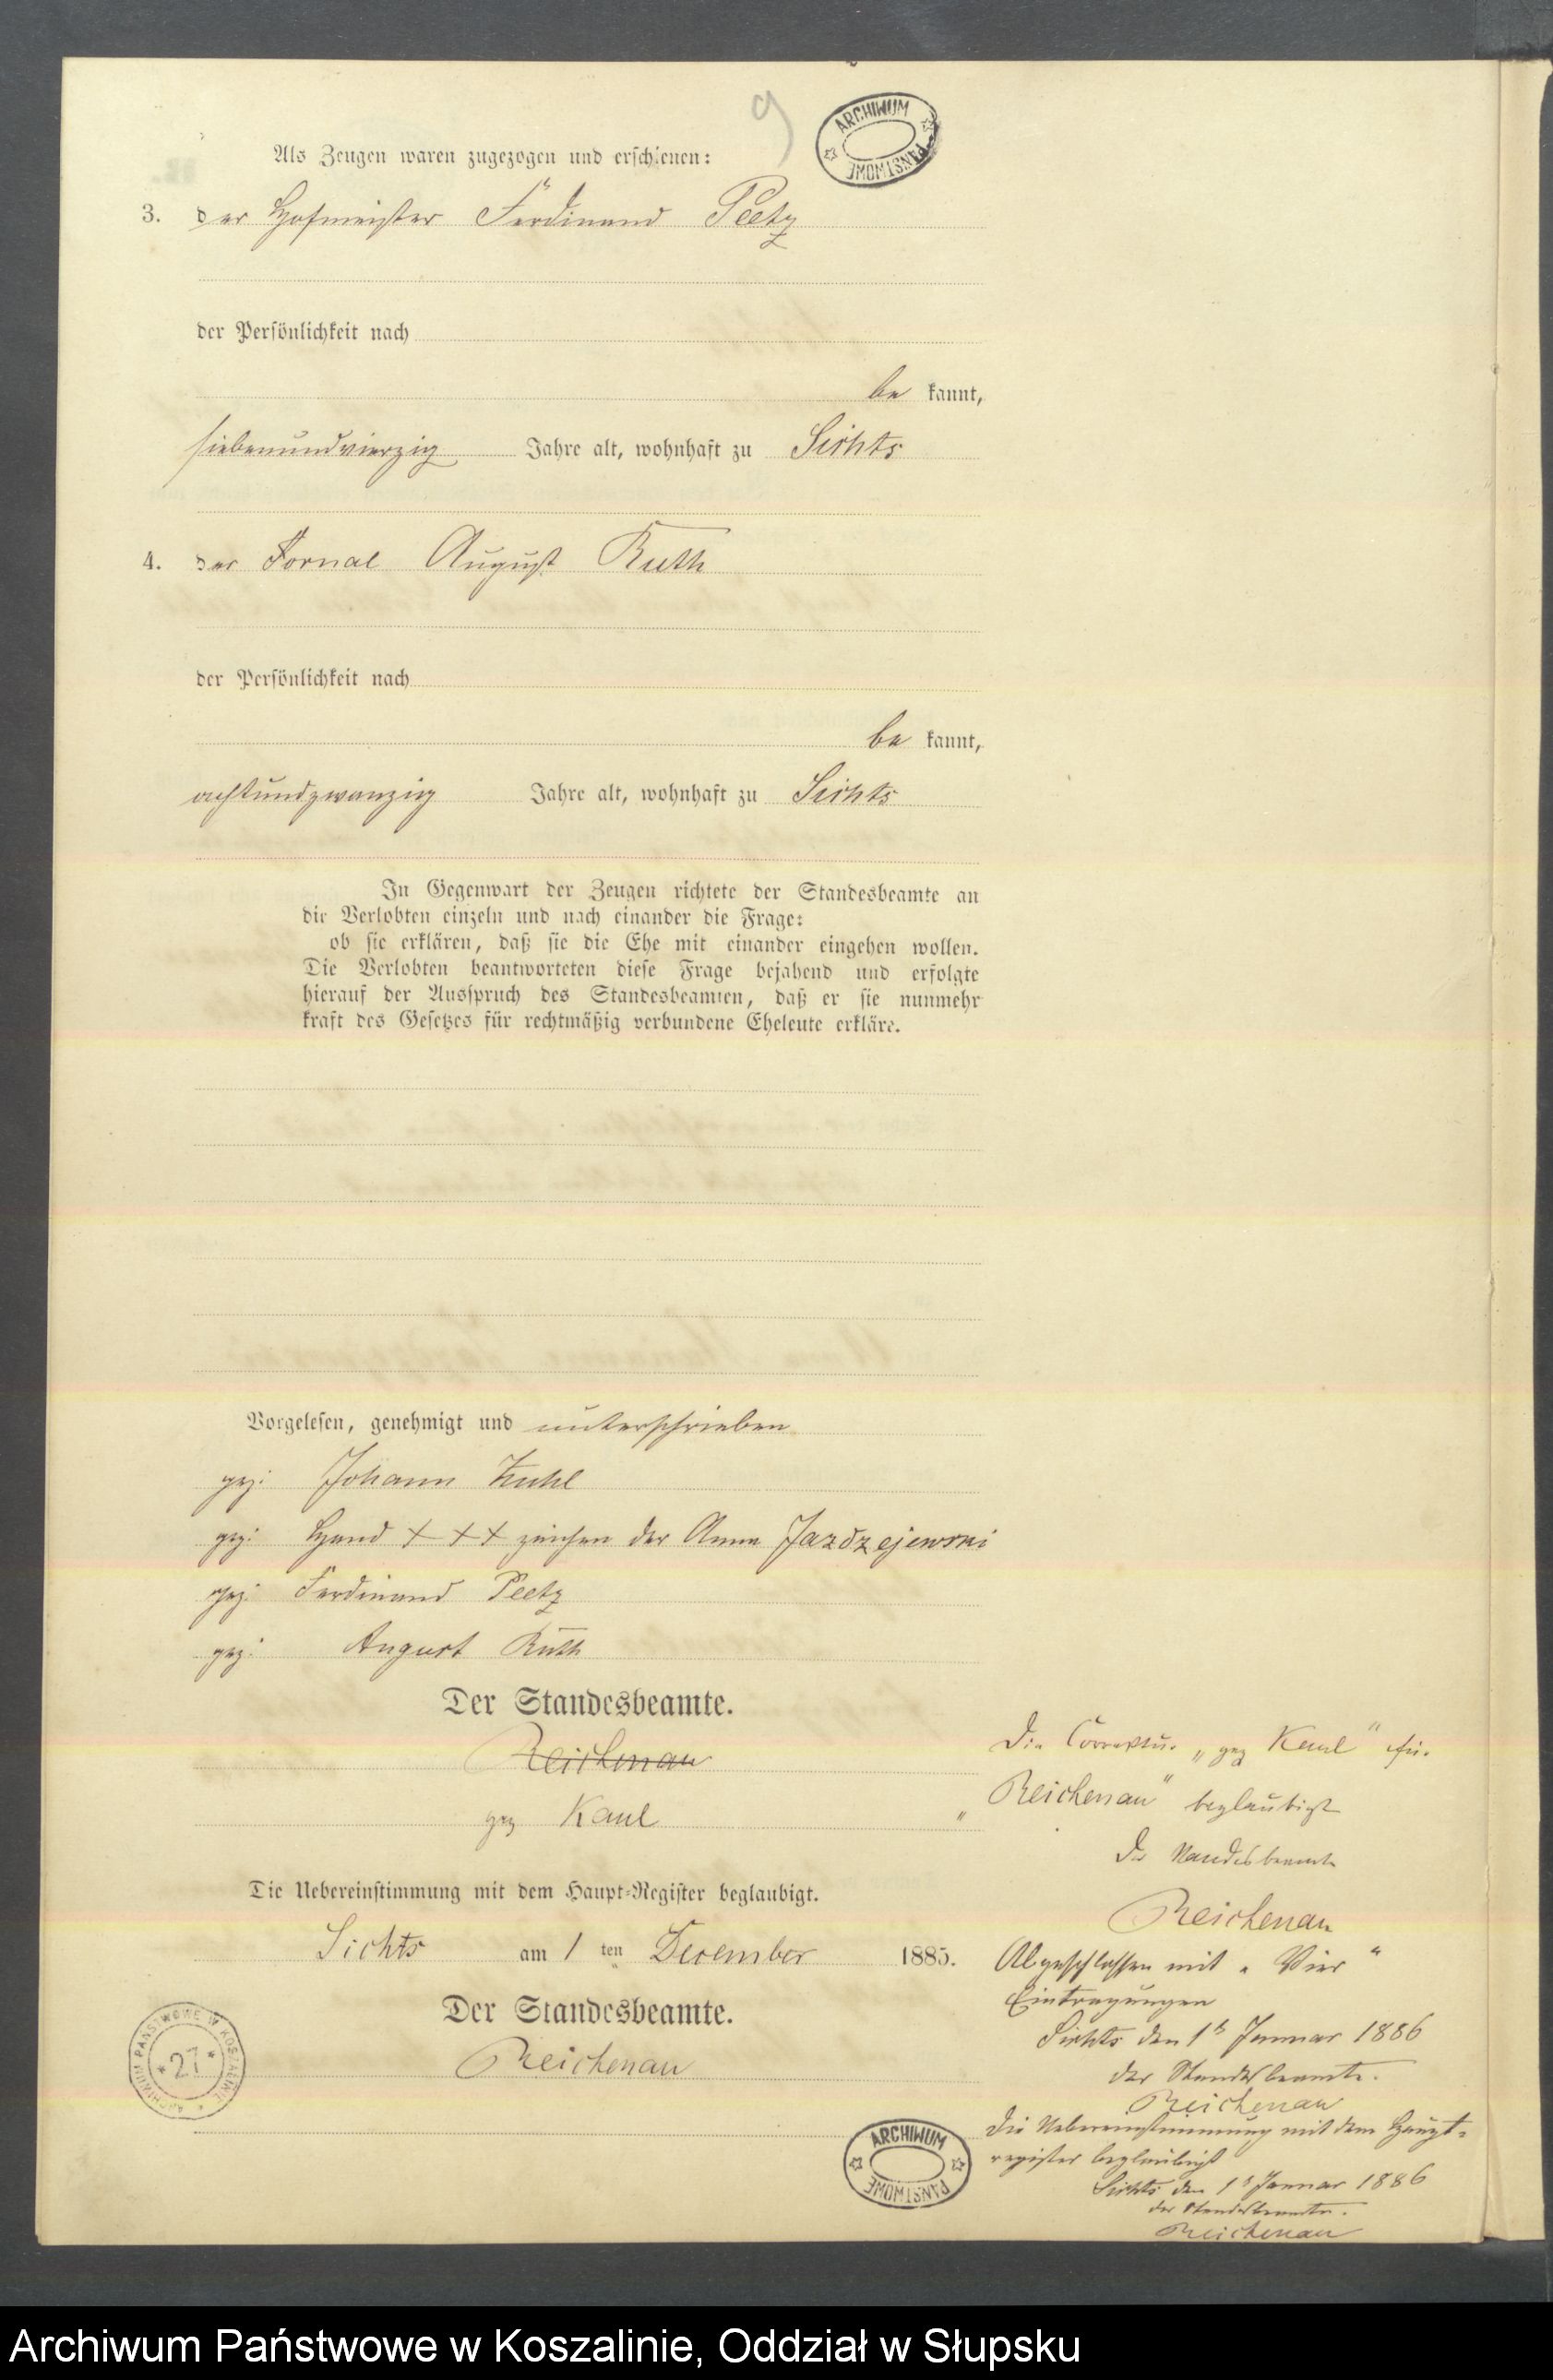 9
ARCHIWUM PAŃSTWOWE
Als Zeugen waren zugezogen und erschienen:
3. der Hofmeister Ferdinand Peetz
der Persönlichkeit nach
be kannt,
siebenundvierzig Jahre alt, wohnhaft zu Sichts
4. der Fornal August Ruth
der Persönlichkeit nach
be kannt,
achtundzwanzig Jahre alt, wohnhaft zu Sichts
In Gegenwart der Zeugen richtete der Standesbeamte an
die Verlobten einzeln und nach einander die Frage:
ob sie erklären, daß sie die Ehe mit einander eingehen wollen.
Die Verlobten beantworteten diese Frage bejahend und erfolgte
hierauf der Ausspruch des Standesbeamten, daß er sie nunmehr
kraft des Gesetzes für rechtmäßig verbundene Eheleute erkläre.
Vorgelesen, genehmigt und unterschrieben
gez: Johann Kuhl
gez: Hand + + + zeichen der Anna Jazdzejewski
gez: Ferdinand Peetz
gez: August Ruth
Der Standesbeamte.
Reichenau
gez Kaul
Die Uebereinstimmung mit dem Haupt-Register beglaubigt.
Sichts am 1 ten December 1885.
Der Standesbeamte.
Reichenau
Die Correktur „gez Kaul“ für
„Reichenau“ beglaubigt
Der Standesbeamte
Reichenau
Abgeschlossen mit „Vier“
Eintragungen
Sichts den 1t Januar 1886
der Standesbeamte.
Reichenau
Die Uebereinstimmung mit dem Haupt-
register beglaubigt
Sichts den 1t Januar 1886
der Standesbeamte.
Reichenau
ARCHIWUM PAŃSTWOWE W KOSZALINIE
* 27 *
ARCHIWUM PAŃSTWOWE
Archiwum Państwowe w Koszalinie, Oddział w Słupsku